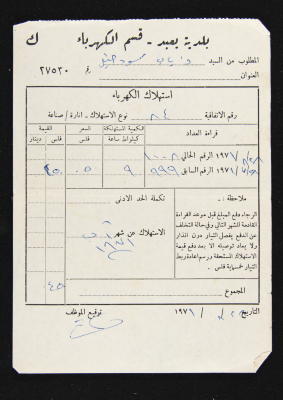 بلدية يعبد - قسم الكهرباء ك
المطلوب من السيد
العنوان
رقم ٢٧٥٣٠
استهلاك الكهرباء
رقم الاتفاقية ٨٤ نوع الاستهلاك - انارة / صناعة
قراءة العداد الكمية المستهلكة السعر القيمة
كيلواط ساعة فلس فلس دينار
الرقم الحالي ١٠٠٨
الرقم السابق ٩٩٩ ٩ ٥٠ ٤٥٠
ملاحظة :- تكملة الحد الادنى
الرجاء دفع المبلغ قبل موعد القراءة
القادمة للشهر التالي وفي حالة التخلف
عن الدفع يفصل التيار دون انذار
ولا يعاد توصيله الا بعد دفع قيمة
الاستهلاك المستحقة ورسم اعادة ربط
التيار خمسماية فلس .
الاستهلاك عن شهر
المجموع ٤٥٠
التاريخ / / ١٩٧١ توقيع الموظف